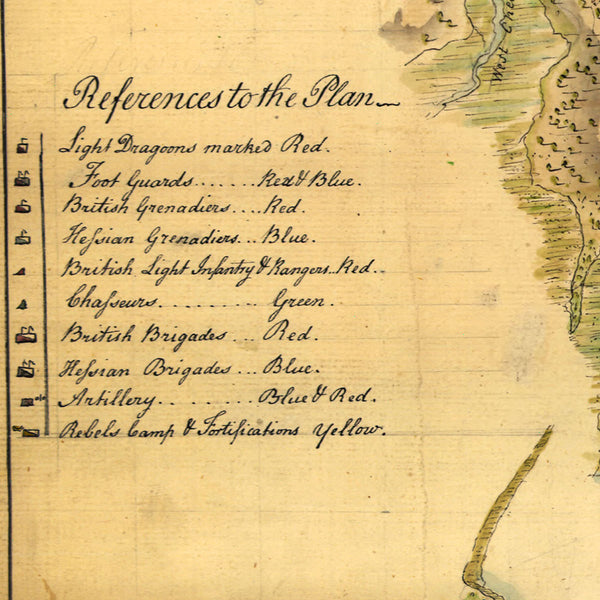 West Cree
References to the Plan
Light Dragoons marked Red.
Foot Guards....... Red & Blue.
British Grenadiers.... Red.
Heſsian Grenadiers... Blue.
British Light Infantry & Rangers.. Red.
Chaſseurs......... Green.
British Brigades... Red.
Heſsian Brigades... Blue.
Artillery........ Blue & Red.
Rebels Camp & Fortifications Yellow.